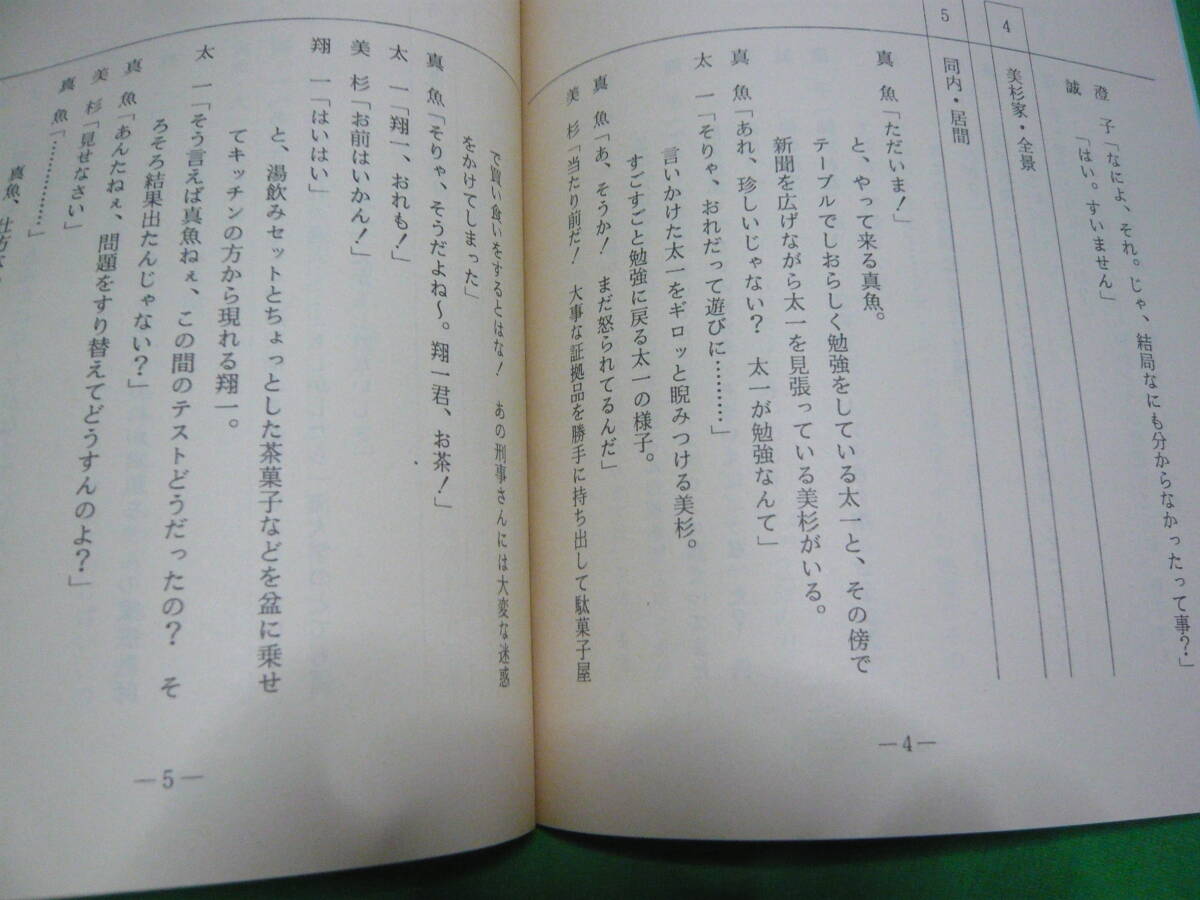 澄 子「なによ、それ。じゃ、結局なにも分からなかったって事？」
誠 「はい。すいません」
4 美杉家・全景
5 同内・居間
真 魚「ただいま！」
と、やって来る真魚。
テーブルでしおらしく勉強をしている太一と、その傍で
新聞を広げながら太一を見張っている美杉がいる。
真 魚「あれ、珍しいじゃない？ 太一が勉強なんて」
太 一「そりゃ、おれだって遊びに………」
言いかけた太一をギロッと睨みつける美杉。
すごすごと勉強に戻る太一の様子。
真 魚「あ、そうか！ まだ怒られてるんだ」
美 杉「当たり前だ！ 大事な証拠品を勝手に持ち出して駄菓子屋
―4―
で買い食いをするとはな！ あの刑事さんには大変な迷惑
をかけてしまった」
真 魚「そりゃ、そうだよね～。翔一君、お茶！」
太 一「翔一、おれも！」
美 杉「お前はいかん！」
翔 一「はいはい」
と、湯飲みセットとちょっとした茶菓子などを盆に乗せ
てキッチンの方から現れる翔一。
太 一「そう言えば真魚ねぇ、この間のテストどうだったの？ そ
ろそろ結果出たんじゃない？」
真 魚「あんたねぇ、問題をすり替えてどうすんのよ？」
美 杉「見せなさい」
真 魚「…………」
真魚、仕方
―5―